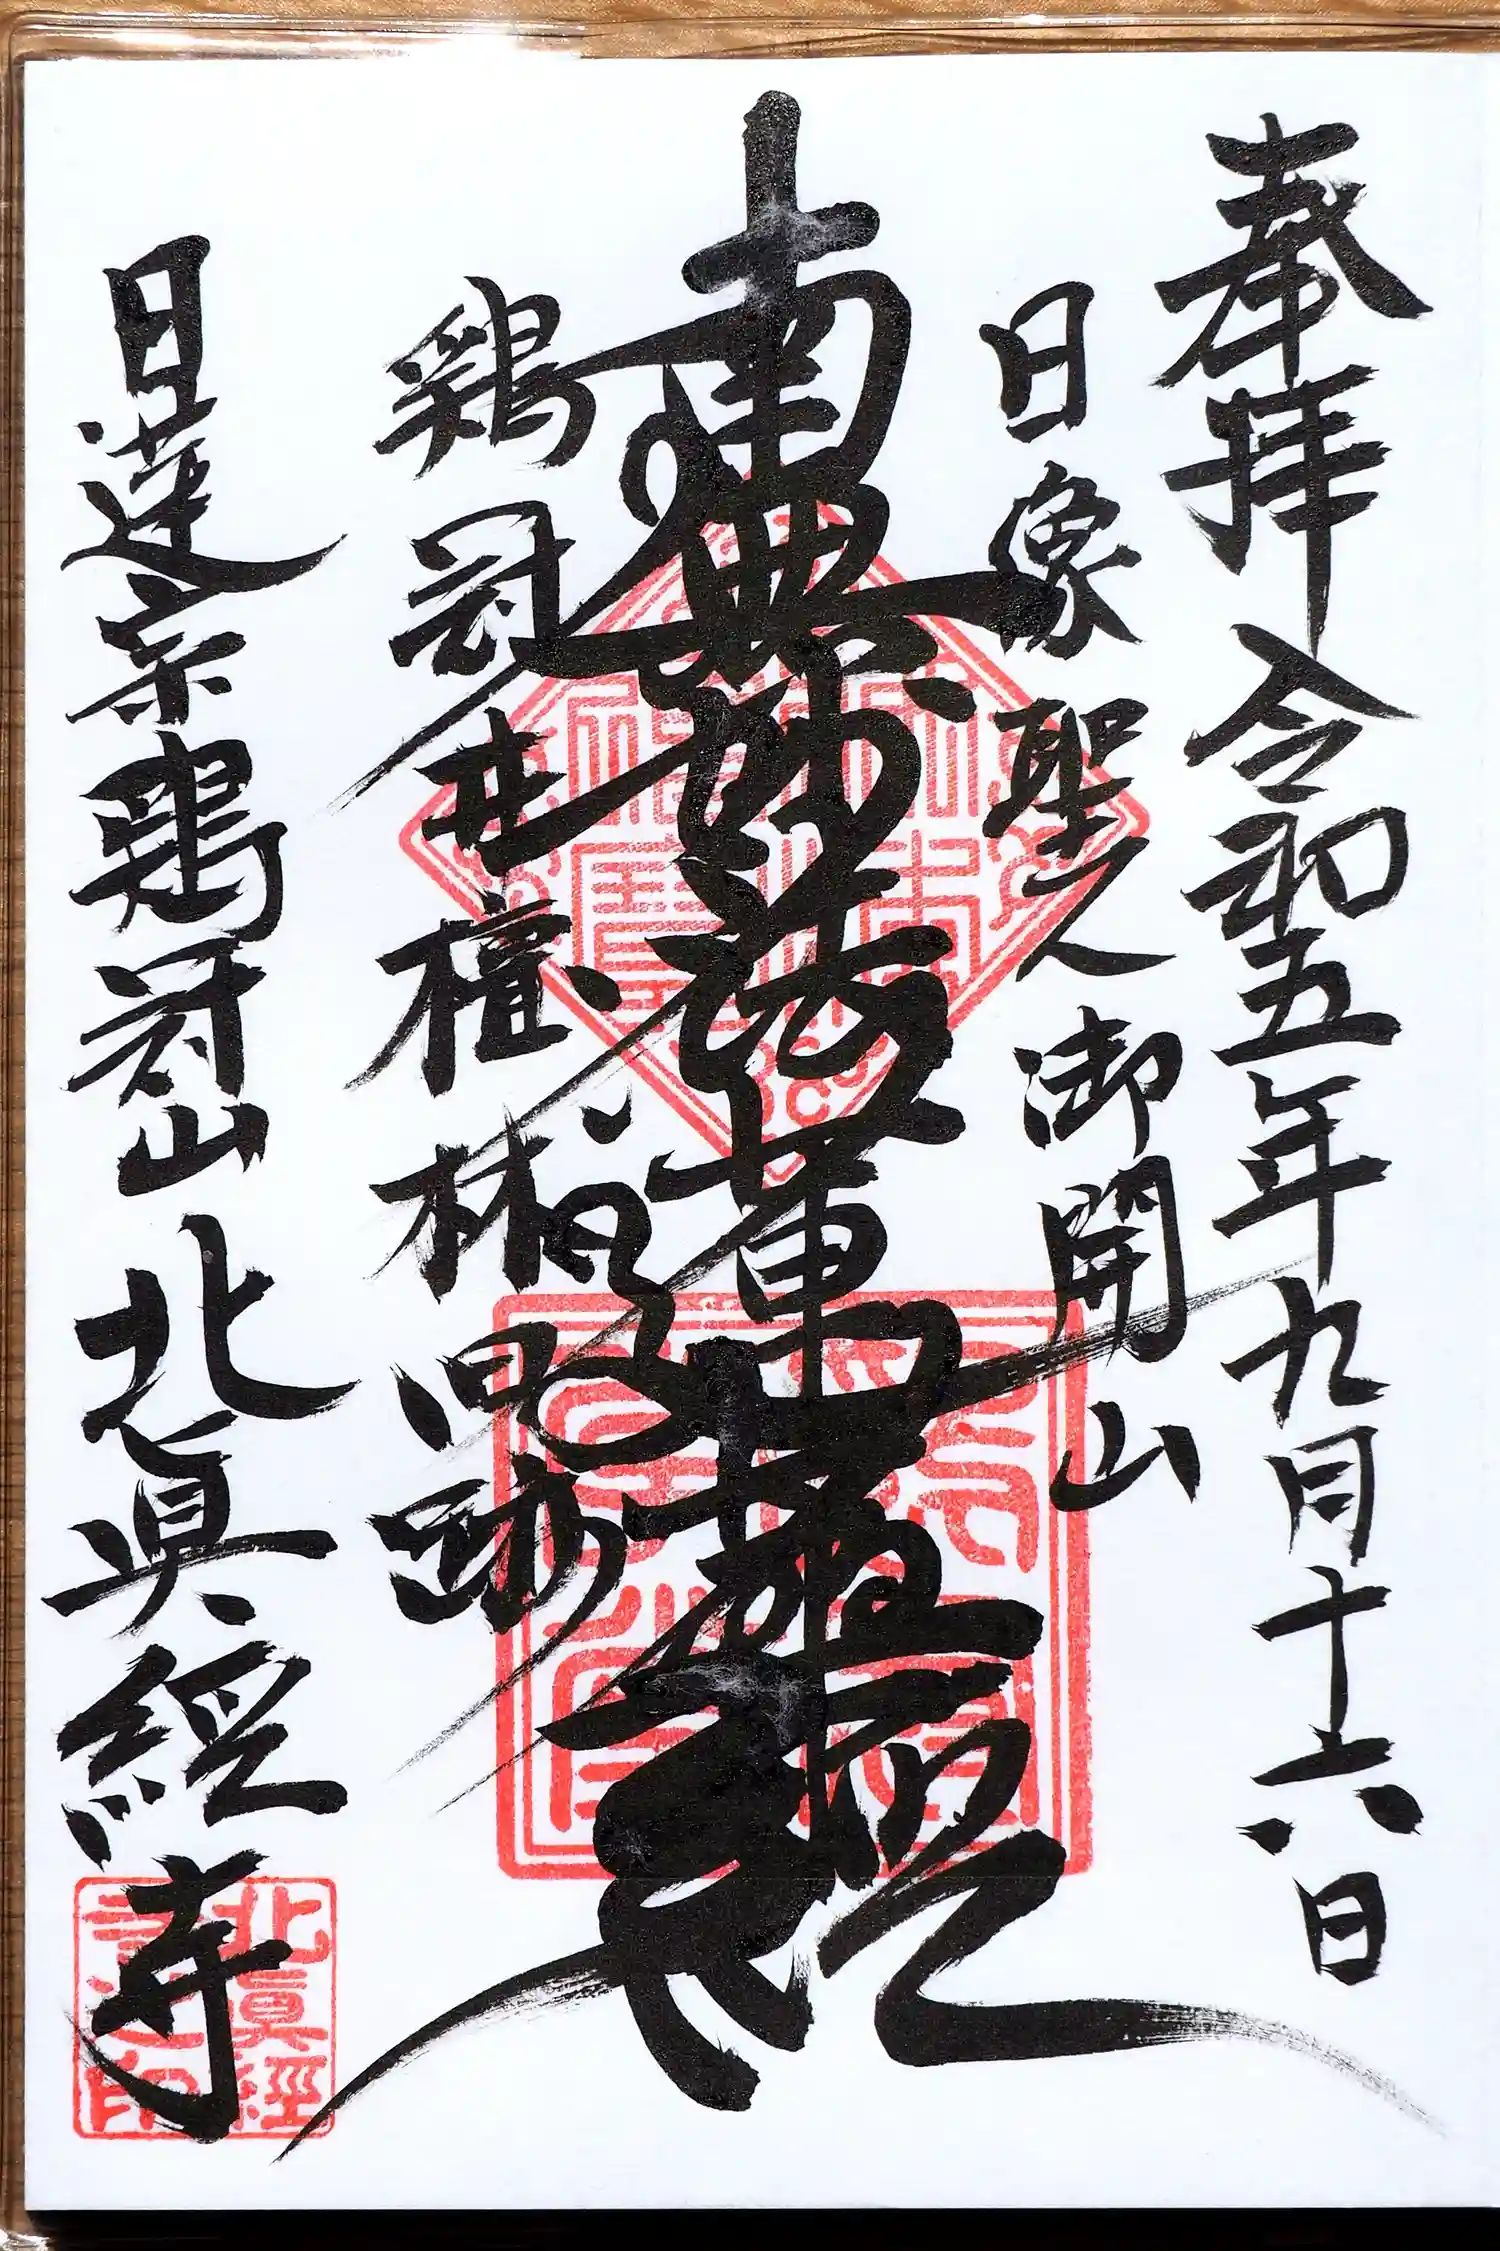 奉拝 令和五年九月十六日
日像聖人御開山
南無妙法蓮華経
鶏冠井檀林旧跡
日蓮宗鶏冠山北眞経寺
北眞經
寺之印